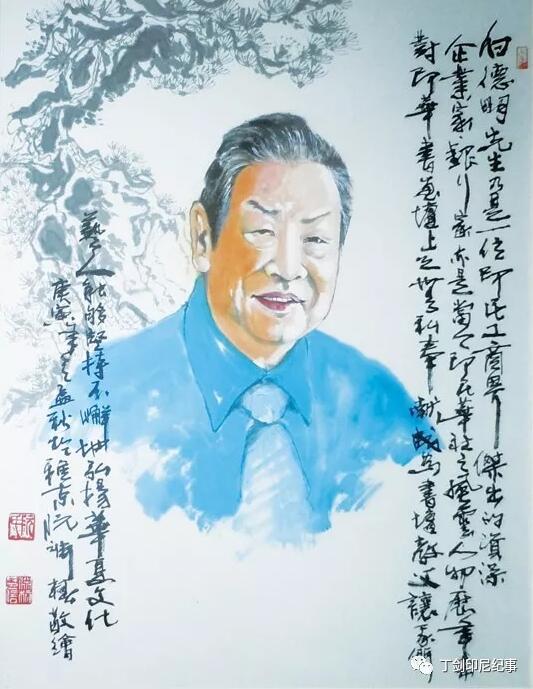 白德明先生乃是一位印尼工商界傑出的資深
企業家銀行家亦是當今印尼華社之風雲人物歷年來
對印華書畫壇上之無私奉獻成為書壇教父讓我們
藝人能够堅持不懈地弘揚華夏文化
庚寅年之孟秋於雅京阮淵椿敬繪
丁剑印尼纪事